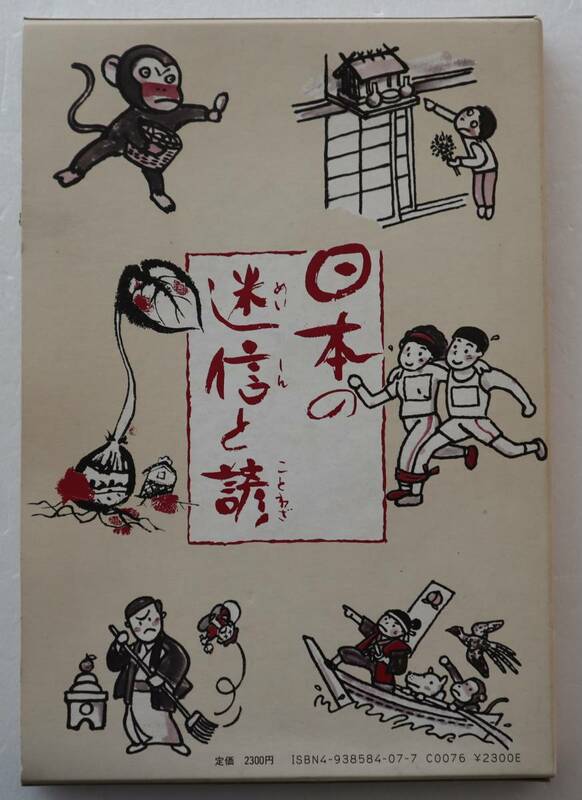 日本の
迷信と諺
めい しん ことわざ
定価 2300円 ISBN4-938584-07-7 C0076 ¥2300E